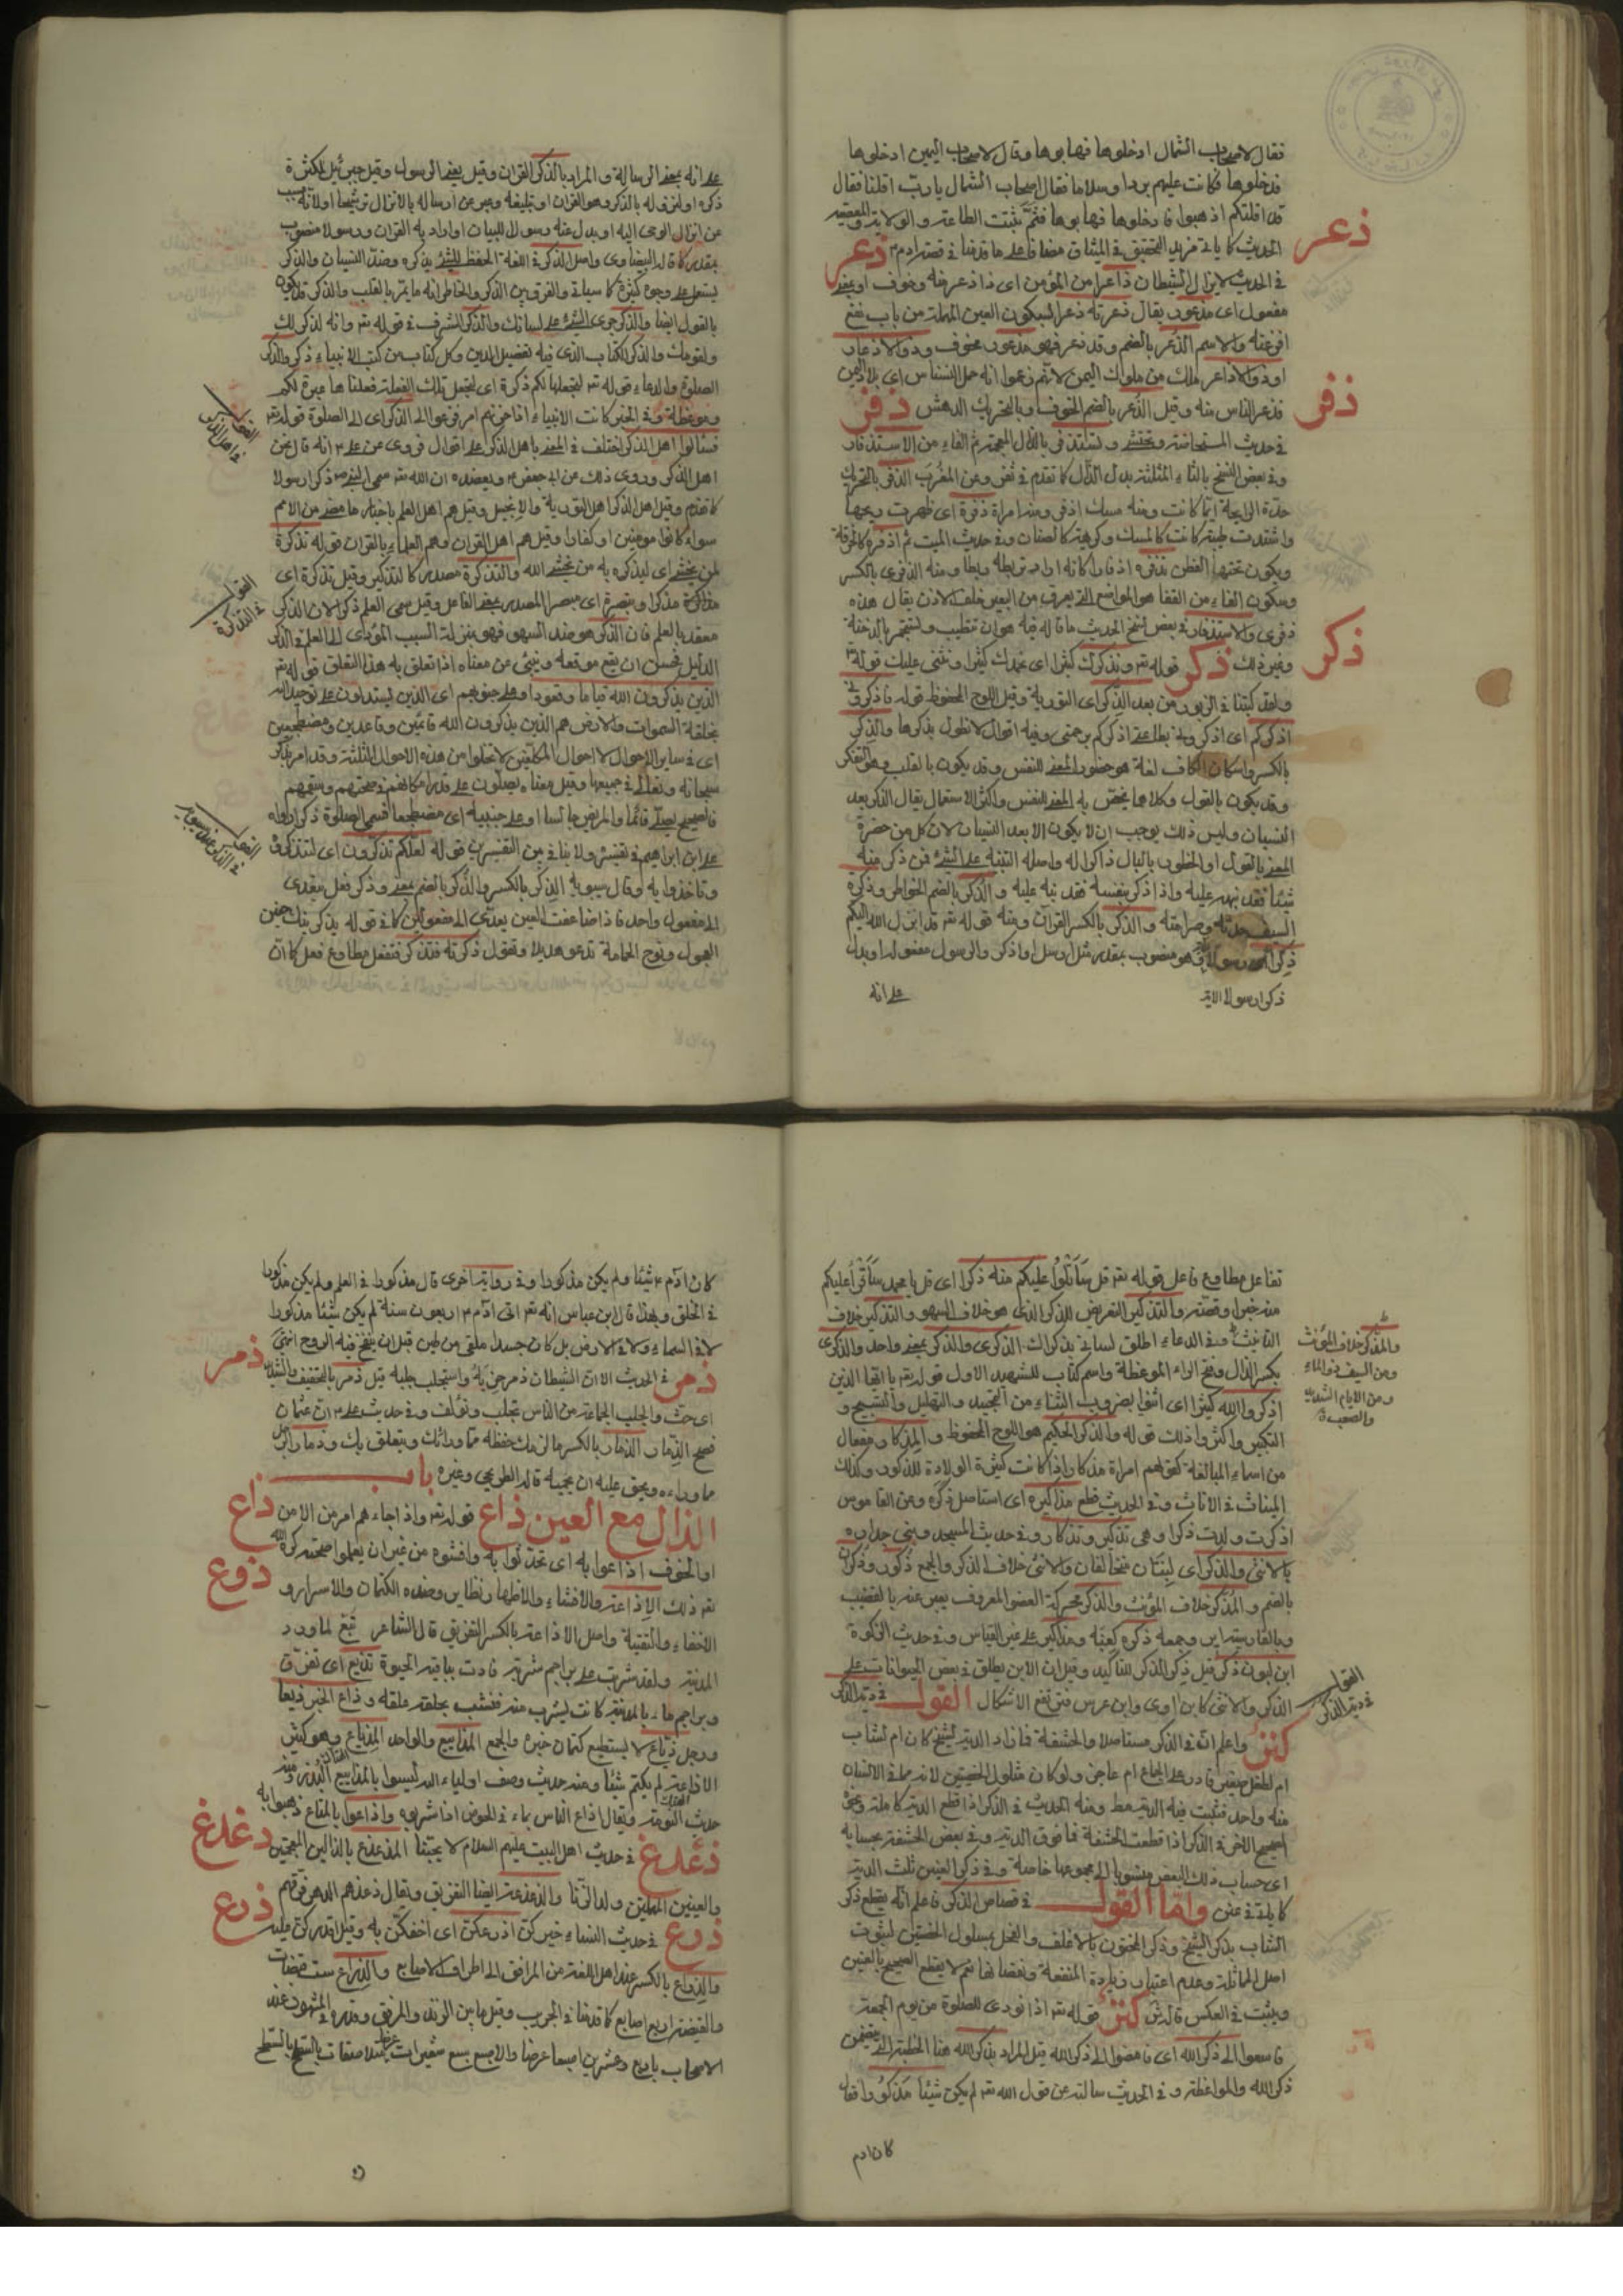 فقال لاصحاب الشمال ادخلوها فهابوها وقال لاصحاب اليمين ادخلوها
فدخلوها فكانت عليهم بردا وسلاما فقال اصحاب الشمال يا رب اقلنا فقال
قد اقلتكم اذهبوا فادخلوها فهابوها فثم ثبتت الطاعة والولاية والمعصية
الحديث كما ياتى مزيد التحقيق فى الميثاق مضافا على ما قدمنا فى قصة ادم ذعر
ذعر
فى الحديث لا يزال الشيطان ذاعرا من المؤمن اى ذا ذعر فيه وخوف او بمعنى
مفعول اى مذعور يقال ذعرته ذعرا بسكون العين المهملة من باب نفع
افزعته والاسم الذعر بالضم وقد ذعر فهو مذعور مخوف وذو الاذعار
اوذ والاذاعر ملك من ملوك اليمن لانهم زعموا انه حمل النسناس اى بلاد اليمن
فذعر الناس منه وقيل الذعر بالضم الخوف وبالتحريك الدهش ذفر
ذفر
فى حديث المستحاضة وتحتشى وتستذفر بالذال المعجمة ثم الفاء من الاستذفار
وفى بعض النسخ بالثاء المثلثة بدل الذال كما تقدم فى ثفر وعن المغرب الذفر بالتحريك
حدة الرايحة ايما كانت ومنه مسك اذفر ومنه امراة ذفرة اى ظهرت ريحها
واشتدت طيبة كانت كالمسك او كريهة كالصنان وفى حديث الميت ثم اذفره كالخرقة
ويكون تحتها القطن تذفره اذفارا كانه اراد تربطه ربطا ومنه الذفرى بالكسر
وسكون الفاء من القفا هو الموضع الذى يعرق من البعير خلف الاذن يقال هذه
ذفرى والاستذفار فى بعض نسخ الحديث ما قاله فيه هو ان تتطيب وتستجمر بالدخنة
وغير ذلك ذكر قوله تعـ ونذكرك كثيرا اى نحمدك كثيرا ونثنى عليك قوله
ذكر
ولقد كتبنا فى الزبور من بعد الذكر اى التورية وقيل اللوح المحفوظ قوله فاذكرونى
اذكركم اى اذكرونى بطاعتى اذكركم برحمتى وفيه اقوال لا نطول بذكرها والذكر
بالكسر واسكان الكاف لغة هو حضور المعنى للنفس وقد يكون بالقلب وهو التفكر
وقد يكون بالقول وكلاهما يخص به المعنى للنفس واكثر الاستعمال يقال الذكر بعد
النسيان وليس ذلك يوجب ان لا يكون الا بعد النسيان لان كل من حضره
المعنى بالقول او الخطور بالبال ذاكر له واصله التنبه على الشئ فمن ذكر منبه
شيئا فقد نبه عليه واذا ذكر بنفسه فقد نبه عليه والذكر بالضم الخواطر وذكرة
السيف حدته وصرامته والذكر بالكسر القرآن ومنه قوله تعـ قد انزل الله اليكم
ذكرا رسولا وهو منصوب بمقدر مثل ارسل او اذكر والرسول مفعوله او بدل
ذكرا رسولا الاية
على انه
على انه بمعنى الرسالة والمراد بالذكر القران وقيل يعنى الرسول وقيل جبرئيل لكثرة
ذكره او لنزوله بالذكر وهو القران او تبليغه وعبر عن ارساله بالانزال ترشيحا او لانه سبب
عن انزال الوحى اليه او بدل عنه رسولا للبيان او اراد به القران ورسولا منصوب
بمقدر كما قاله البيضاوى واصل الذكر فى اللغة الحفظ للشئ بذكره وضده النسيان والذكر
يستعمل على وجوه كثيرة كما سياتى والفرق بين الذكر والخاطر انه ما يمر بالقلب والذكر قد يكون
بالقول ايضا والذكر جرى الشئ على لسانك والذكر الشرف فى قوله تعـ وانه لذكر لك
ولقومك والذكر الكتاب الذى فيه تفصيل الدين وكل كتاب من كتب الانبياء ذكر والذكر
الصلوة والدعاء قوله تعـ لنجعلها لكم تذكرة اى لنجعل تلك الفعلة فعلناها عبرة لكم
وموعظة وفى الخبر كانت الانبياء اذا حزنهم امر فزعوا الى الذكر اى الى الصلوة قوله تعـ
القول فى اهل الذكر
فسئلوا اهل الذكر اختلف فى المعنى باهل الذكر على اقوال فروى عن على انه قال نحن
اهل الذكر وروى ذلك عن ابى جعفر ويعضده ان الله تعـ سمى النبى ذكرا رسولا
كما تقدم وقيل اهل الذكر اهل التورية والانجيل وقيل هم اهل العلم باخبار ما مضى من الامم
سواء كانوا مومنين او كفارا وقيل هم اهل القران وهم العلماء بالقران قوله تذكرة
لمن يخشى اى ليذكر به من يخشى الله والتذكرة مصدر كالتذكير وقيل تذكرة اى
القول فى التذكرة
مذاكرة مذكرا وتبصرة اى مبصرا المصدر بمعنى الفاعل وقيل سمى العلم ذكرا لان الذكر
معقد بالعلم فان الذكر هو ضد السهو فهو بمنزلة السبب المؤدى الى العلم والذكر
الدليل فحسن ان يقع موقعه وينبئ عن معناه اذا تعلق به هذا التعلق قوله تعـ
الذين يذكرون الله قياما وقعودا وعلى جنوبهم اى الذين يستدلون على توحيد الله
بخلقة السموات والارض هم الذين يذكرون الله قائمين وقاعدين ومضطجعين
اى فى ساير الاحوال لا احوال المكلفين لا تخلوا من هذه الاحوال الثلثة وقد امر بذكر
سبحانه وتعالى فى جميعها وقيل معناه يصلون على قدر امكانهم فى صحتهم وسقمهم
فالصحيح يصلى قائما والمريض جالسا او على جنبيه اى مضطجعا فسمى الصلوة ذكرا رواه
القول فى الذكر عند سيبويه
على ابن ابراهيم فى تفسيره ولا تنافى بين التفسيرين قوله لعلكم تذكرون اى لتتذكروه
وتاخذوا به وقال سيبويه الذكر بالكسر والذكر بالضم بمعنى وذكر فعل يتعدى
الى مفعول واحد فاذا ضاعفت العين يعدى الى مفعولين كما فى قوله يذكرنيك حنين
العجول ونوح الحمامة تدعو هديلا وتقول ذكرته فتذكر فتفعل مطاوع فعل كما ان
تفاعل مطاوع فاعل قوله تعـ قل سأتلوا عليكم منه ذكرا اى قل يا محمد سأقرأ عليكم
منه خبرا وقصته والتذكير التعريض للذكر الذى هو خلاف السهو والتذكير خلاف
التانيث وفى الدعاء اطلق لسانى بذكراك الذكرى والذكر بمعنى واحد والذكرى
والمذكر خلاف المؤنث
ومن السيف ذو الماء
ومن الايام الشديد
والصعبة
بكسر الذال وفتح الراء الموعظة واسم كتاب للشهيد الاول قوله تعـ يا ايها الذين
اذكروا الله كثيرا اى اثنوا بضروب الثناء من التمجيد والتهليل والتسبيح و
التكبير واكثروا ذلك قوله والذكر الحكيم هو اللوح المحفوظ والمذكار مفعال
من اسماء المبالغة كقولهم امراة مذكار اذا كانت كثيرة الولادة للذكور وكذلك
الميناث فى الاناث وفى الحديث قطع مذاكيره اى استاصل ذكره وعن القاموس
اذكرت ولدت ذكرا وهى تذكير وتذكار وفى حديث المسجد وبنى جداره
بالانثى والذكر اى لبنتان تتخالفان والانثى خلاف الذكر والجمع ذكور وذكران
بالضم والمذكر خلاف المؤنث والذكر محركة العضو المعروف يعبر عنه بالقضيب
وبالفارسية اير وجمعه ذكره كعنبه ومذاكير على غير القياس وفى حديث الزكوة
ابن لبون ذكر قيل ذكر الذكر للتاكيد وقيل ان الابن يطلق فى بعض الحيوانات على
الذكر والانثى كابن اوى وابن عرس فيرتفع الاشكال القول فى دية الذكر
القول فى دية الذكر
كنز واعلم ان فى الذكر مستاصلا والحشفة فما زاد الدية لشيخ كان ام لشاب
ام لطفل صغير قادر على الجماع ام عاجز ولو كان مسلول الخصيتين لانه مما فى الانسان
منه واحد فتثبت فيه الدية مط ومنه الحديث فى الذكر اذا قطع الدية كاملة وفى
الصحيح الاخر فى الذكر اذا قطعت الحشفة فما فوق الدية وفى بعض الحشفة بحسابه
اى حساب ذلك البعض منسوبا الى مجموعها خاصة وفى ذكر العنين ثلث الدية
كما ياتى فى عنن واما القول فى قصاص الذكر فاعلم انه يقطع ذكر
الشاب بذكر الشيخ وذكر المختون بالاغلف والفحل بمسلول الخصيتين لثبوت
اصل المماثلة وعدم اعتبار زيادة المنفعة ونقصانها نعم لا يقطع الصحيح بالعنين
ويثبت فى العكس كنز قوله تعـ اذا نودى للصلوة من يوم الجمعة
فاسعوا الى ذكر الله اى فامضوا الى ذكر الله قيل المراد بذكر الله هنا الخطبة التى تتضمن
ذكر الله والمواعظة وفى الحديث سالته عن قول الله تعـ لم يكن شيئا مذكورا فقال
كان ادم
كان ادم شيئا ولم يكن مذكورا وفى رواية اخرى قال مذكورا فى العلم ولم يكن مذكورا
فى الخلق وبهذا قال ابن عباس انه تعـ اتى ادم اربعون سنة لم يكن شيئا مذكورا
لا فى السماء ولا فى الارض بل كان جسدا ملقى من طين قبل ان ينفخ فيه الروح انتهى
ذمر
ذمر فى الحديث الا ان الشيطان ذمر حزبه واستجلب جلبه قيل ذمر بالتخفيف والتشديد
اى حث والجلب الجماعة من الناس تجلب وتؤلف وفى حديث على ان عثمان
فضح الذمار الذمار بالكسر ما لزمك حفظه مما وراءك ويتعلق بك وذمار الرجل
مما وراءه ويحق عليه ان يحميه قاله الطريحى وغيره باب
الذال مع العين ذاع قوله تعـ واذا جاءهم امر من الامن
ذاع
او الخوف اذاعوا به اى تحدثوا به وافشوه من غير ان يعلموا صحته كره الله
ذوع
تعـ ذلك الاذاعة والافشاء والاظهار نظاير وضده الكتمان والاسرار و
الاخفاء والتقية واصل الاذاعة بالكسر التفريق قال الشاعر تبع لما ورد
المدينة ولقد شربت على براجم شربة كادت بباقية الحيوة تذيع اى تفرق
وبراجم ماء بالمدينة كانت يشرب منه فنشب بحلقه علقة وذاع الخبر ذيعا
ورجل ذياع لا يستطيع كتمان خبره والجمع المذاييع والواحد المذياع وهو كثير
الاذاعة لم يكتم شيئا ومنه حديث وصف اولياء الله ليسوا بالمذاييع البذر ومنه
حديث النومة ويقال اذاع الناس بماء فى الحوض اذا شربوه واذاعوا بالمتاع ذهبوا به
ذعذع
ذعذع فى حديث اهل البيت عليهم السلام لا يحبنا المذعذع بالذالين المعجمتين
والعينين المهملتين ولد الزنا والذعذعة ايضا التفريق ويقال ذعذعهم الدهر فرقهم
ذرع
ذرع فى حديث النساء خيركن اذرعكن اى اخفكن به وقيل اقدركن عليه
والذراع بالكسر عند اهل اللغة من المرافق الى اطراف الاصابع والذراع ست قبضات
والقبضة اربع اصابع كما قدمنا فى الجريب وقيل ما بين الزند والمرفق وقدره المشهور عند
الاصحاب باربع وعشرين اصبعا عرضا والاصبع سبع شعيرات عرضا متلاصقات بالسطح بالسطح